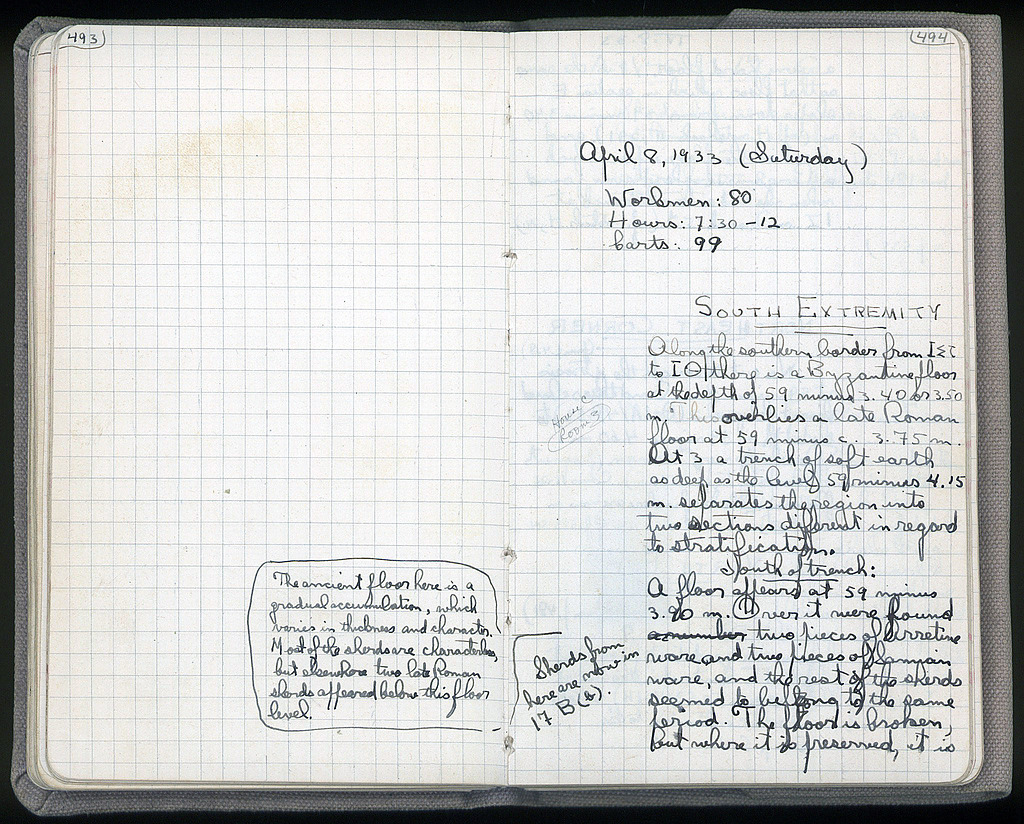 493
The ancient floor here is a
gradual accumulation, which
varies in thickness and character.
Most of the sherds are characterless,
but elsewhere two late Roman
sherds appeared below this floor
level.
494
April 8, 1933 (Saturday)
Workmen: 80
Hours: 7:30-12
Carts: 99
SOUTH EXTREMITY
Along the southern border from
to IΘ there is a Byzantine floor
at the depth of 59 minus 3.40 or 3.50
m. This overlies a late Roman
floor at 59 minus c. 3.75 m.
At 3 a trench of soft earth
as deep as the level 59 minus 4.15
m. separates the region into
two sections different in regard
to stratification.
South of trench:
A floor appears at 59 minus
3.90 m. Over it were found
a number two pieces of Arretine
ware and two pieces of Samian
ware, and the rest of the sherds
seemed to belong to the same
period. The floor is broken,
but where it is preserved, it is
House C
Room 3
Sherds from
here are now in
17 B(b).